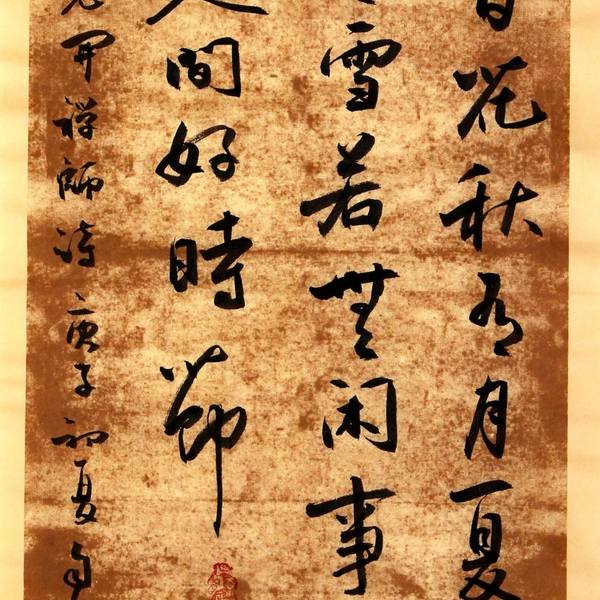 百花秋有月夏
雪若無闲事
人間好時節
開禅師诗庚子初夏